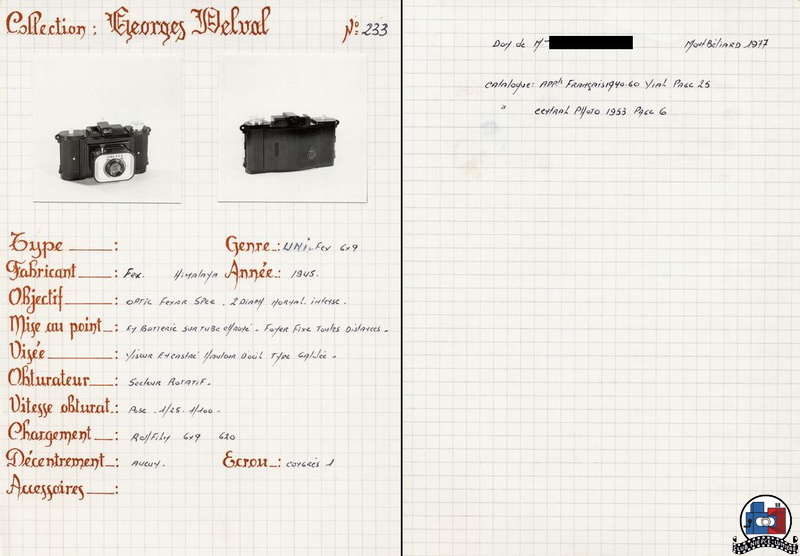 Collection : Georges Delval
N° 233
Type :
Genre : Uni. Fex 6x9
Fabricant : Fex. Himalaya
Année : 1945.
Objectif : OPTIC FEXAR SPEC . 2 DIAPH NORMAL. intense .
Mise au point : Batterie SUR TUBE - Foyer Fixe Toutes Distances -
Visée : Viseur Encastré Hauteur Type Galilée -
Obturateur : Secteur Rotatif -
Vitesse obturat. : Pose . 1/25 . 1/100 .
Chargement : RollFilm 6x9 620
Décentrement : aucun.
Ecrou : CONGRÈS 1
Accessoires :
Don de Mr
MontBéliard 1977
Catalogue: APPh Français 1940.60 Vial Page 25
" central Photo 1953 Page 6